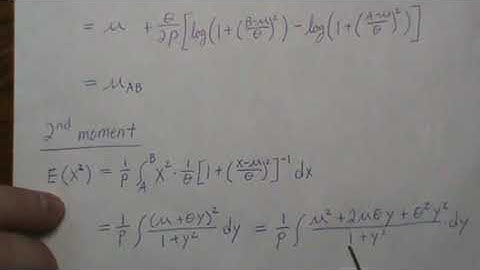 = μ + θ/2P [log(1+((B-μ)/θ)²) - log(1+((A-μ)/θ)²)]
= μ_AB
2nd moment
E(X²) = 1/P ∫_A^B X² · 1/θ [1+((X-μ)/θ)²]⁻¹ dx
= 1/P ∫ (μ+θy)²/(1+y²) dy = 1/P ∫ (μ²+2μθy+θ²y²)/(1+y²) dy